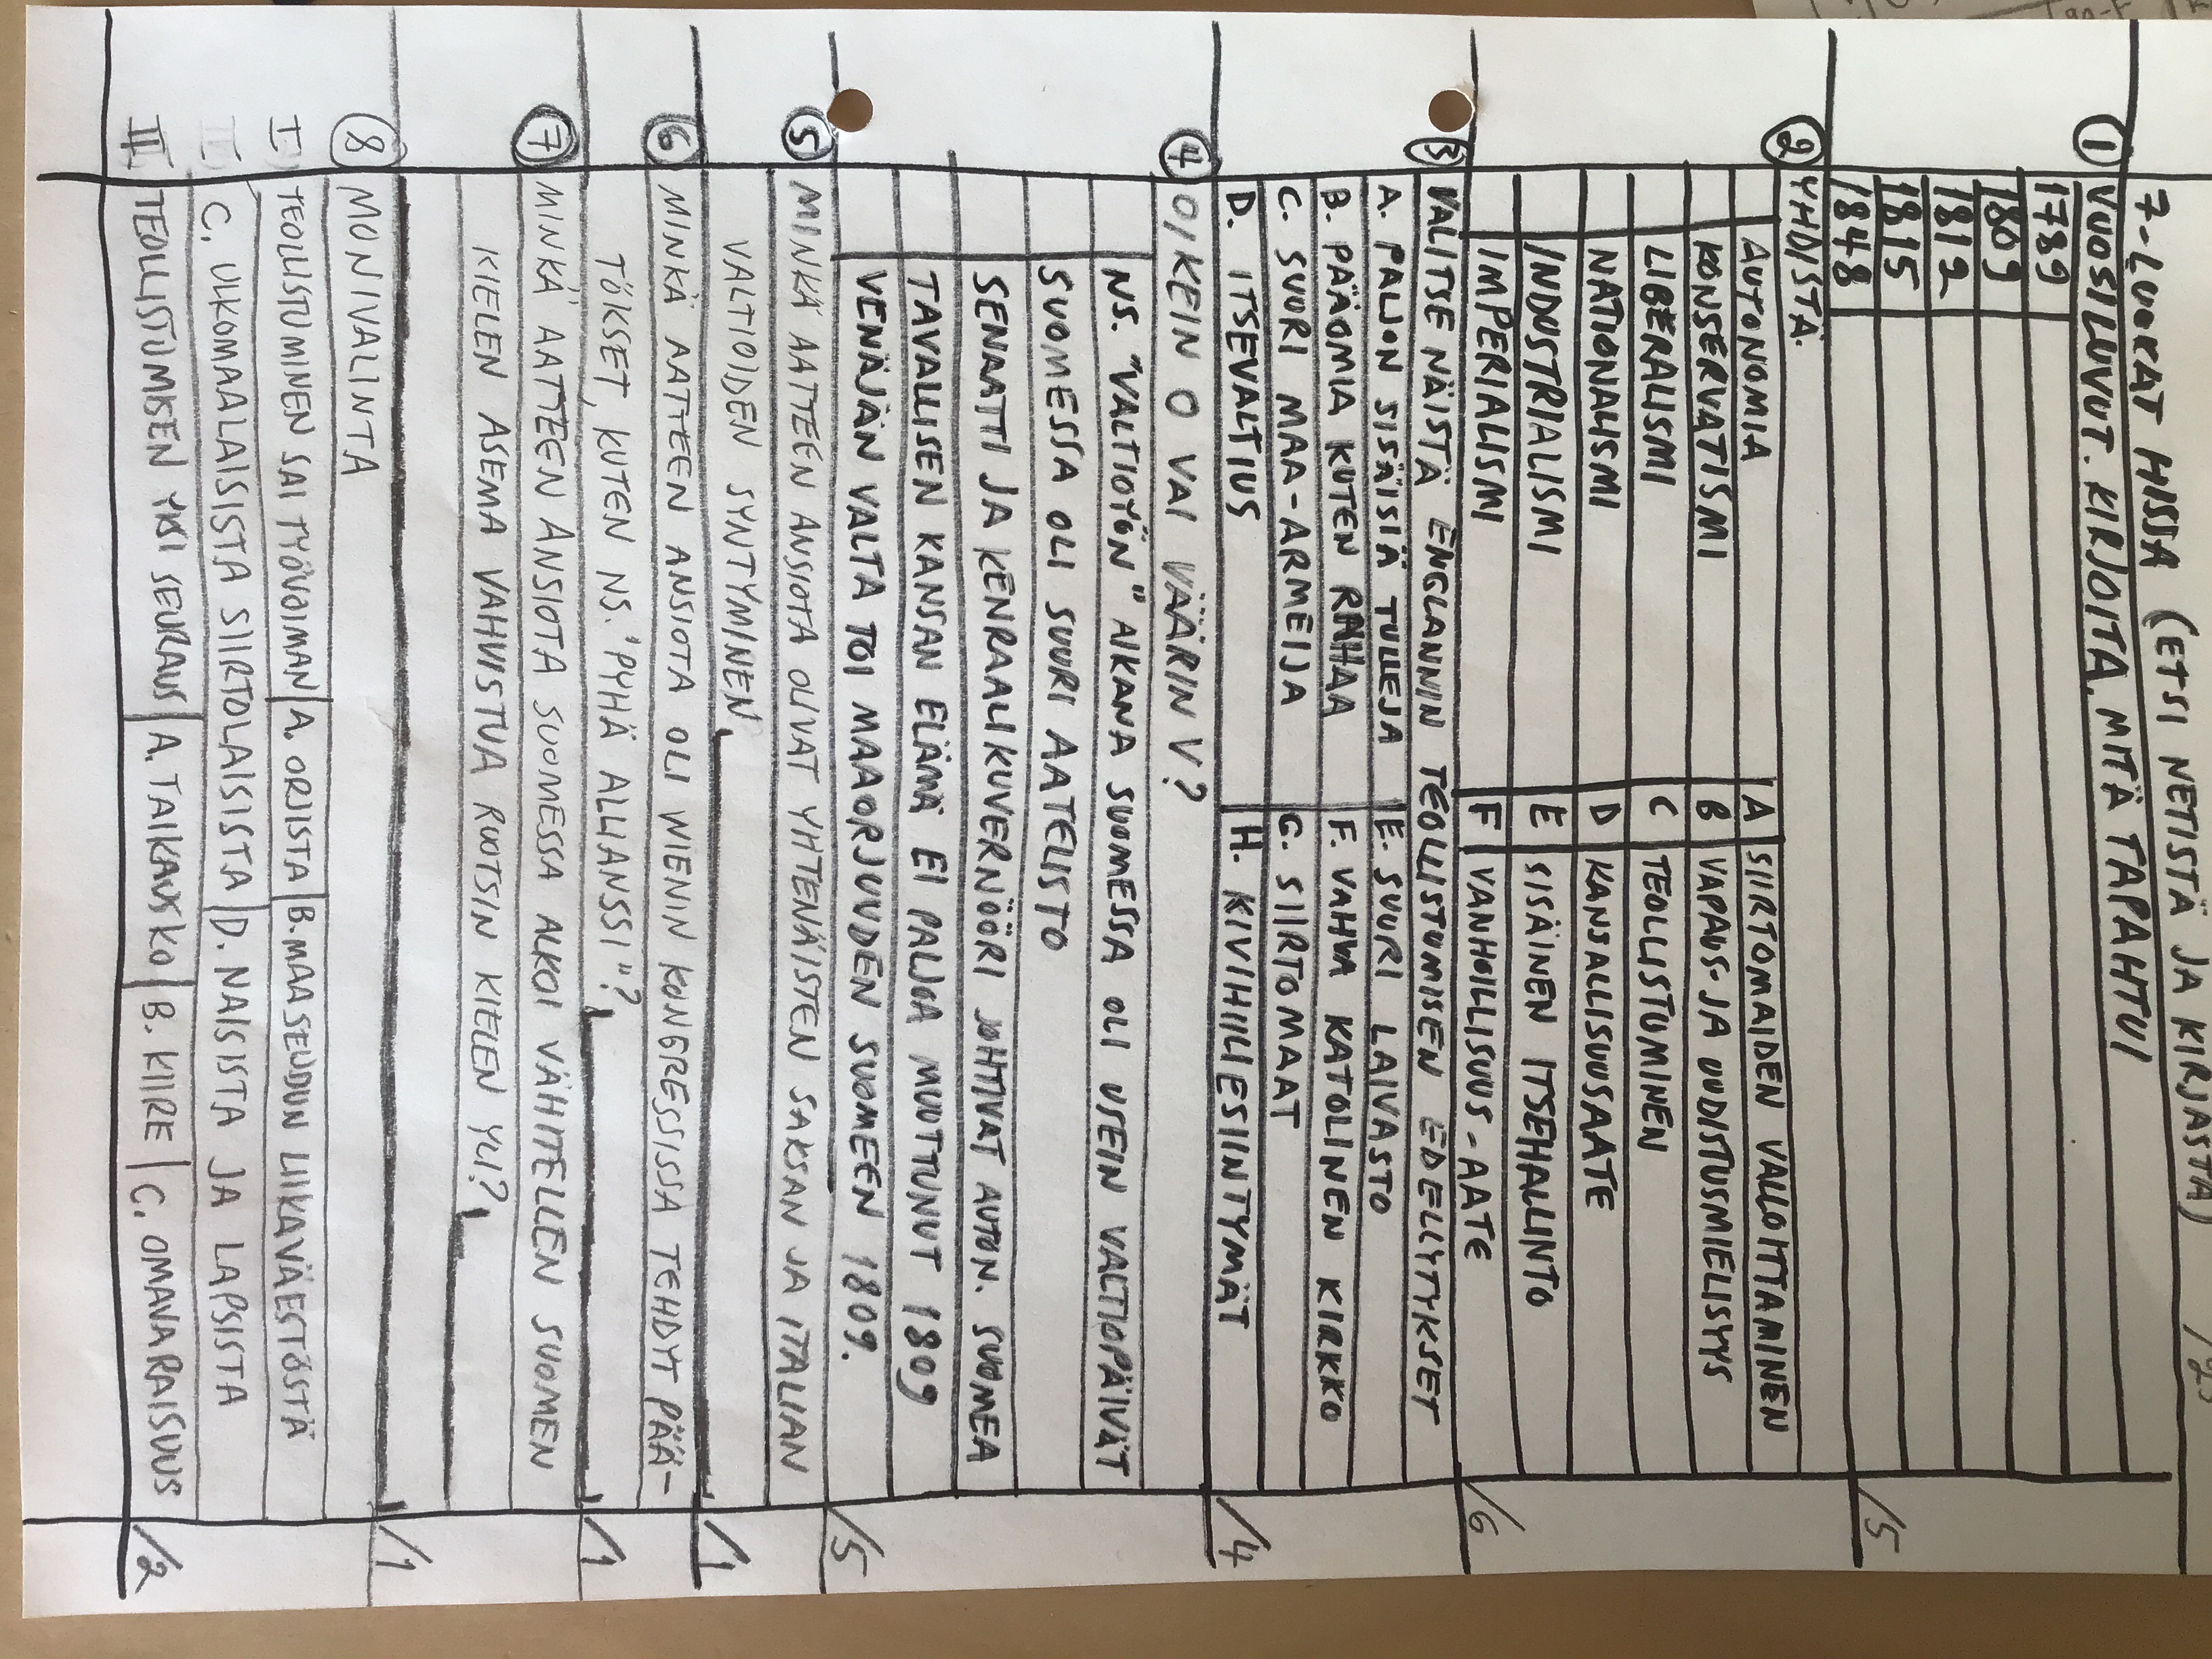 7-LUOKAT HISSA (ETSI NETISTÄ JA KIRJASTA)
① VUOSILUVUT. KIRJOITA, MITÄ TAPAHTUI
1789
1809
1812
1815
1848 /5
② YHDISTÄ.
AUTONOMIA A SIIRTOMAIDEN VALLOITTAMINEN
KONSERVATISMI B VAPAUS- JA UUDISTUSMIELISYYS
LIBERALISMI C TEOLLISTUMINEN
NATIONALISMI D KANSALLISUUSAATE
INDUSTRIALISMI E SISÄINEN ITSEHALLINTO
IMPERIALISMI F VANHOILLISUUS-AATE /6
③ VALITSE NÄISTÄ ENGLANNIN TEOLLISTUMISEN EDELLYTYKSET
A. PALJON SISÄISIÄ TULLEJA E. SUURI LAIVASTO
B. PÄÄOMIA KUTEN RAHAA F. VAHVA KATOLINEN KIRKKO
C. SUURI MAA-ARMEIJA G. SIIRTOMAAT
D. ITSEVALTIUS H. KIVIHIILIESIINTYMÄT /4
④ OIKEIN O VAI VÄÄRIN V?
NS. "VALTIOYÖN" AIKANA SUOMESSA OLI USEIN VALTIOPÄIVÄT
SUOMESSA OLI SUURI AATELISTO
SENAATTI JA KENRAALIKUVERNÖÖRI JOHTIVAT AUTON. SUOMEA
TAVALLISEN KANSAN ELÄMÄ EI PALJOA MUUTTUNUT 1809
VENÄJÄN VALTA TOI MAAORJUUDEN SUOMEEN 1809. /5
⑤ MINKÄ AATTEEN ANSIOTA OLIVAT YHTENÄISTEN SAKSAN JA ITALIAN
VALTIOIDEN SYNTYMINEN /1
⑥ MINKÄ AATTEEN ANSIOTA OLI WIENIN KONGRESSISSA TEHDYT PÄÄ-
TÖKSET, KUTEN NS. "PYHÄ ALLIANSSI"? /1
⑦ MINKÄ AATTEEN ANSIOTA SUOMESSA ALKOI VÄHITELLEN SUOMEN
KIELEN ASEMA VAHVISTUA RUOTSIN KIELEN YLI? /1
⑧ MONIVALINTA
I TEOLLISTUMINEN SAI TYÖVOIMAN A. ORJISTA B. MAASEUDUN LIIKAVÄESTÖSTÄ
C. ULKOMAALAISISTA SIIRTOLAISISTA D. NAISISTA JA LAPSISTA
II TEOLLISTUMISEN YKSI SEURAUS A. TAIKAUSKO B. KIIRE C. OMAVARAISUUS /2